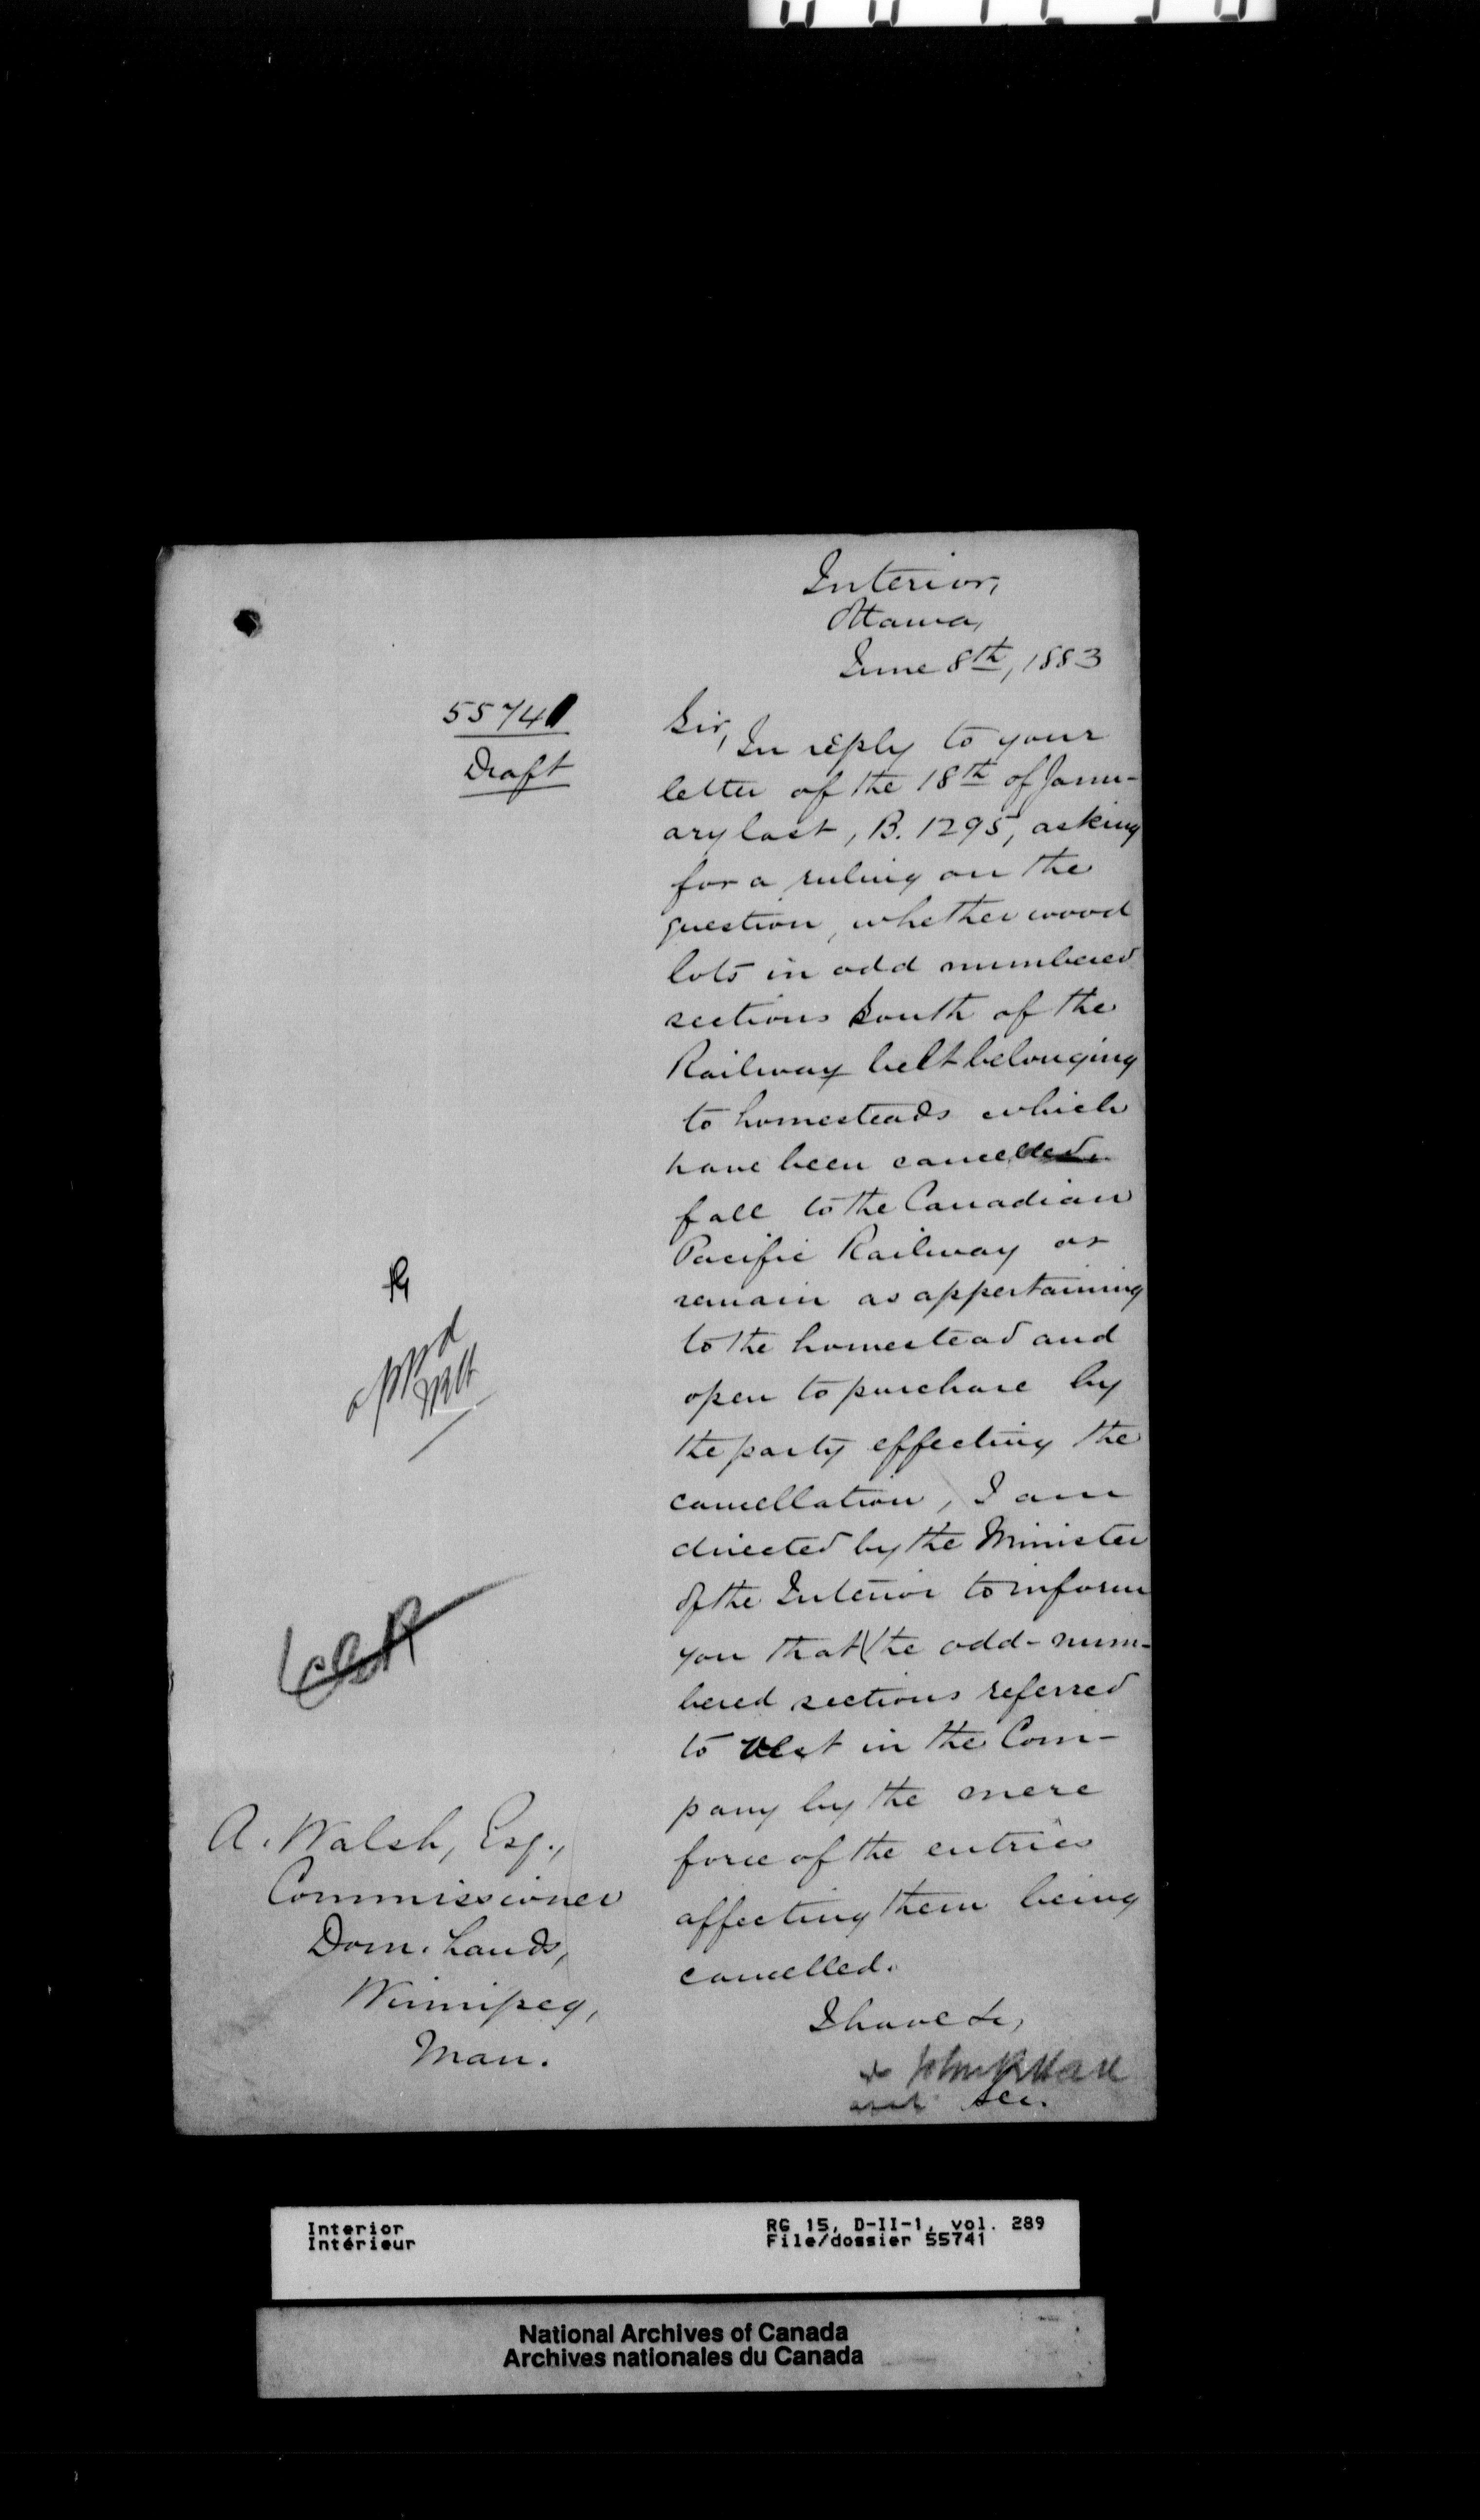 Interior,
Ottawa,
June 8th, 1883
55741
Draft
Sir,
In reply to your
letter of the 18th of Janu-
ary last, B. 1295, asking
for a ruling on the
question, whether wood
lots in odd numbered
sections South of the
Railway belt belonging
to homesteads which
have been cancelled
fall to the Canadian
Pacific Railway or
remain as appertaining
to the homestead and
open to purchase by
the party effecting the
cancellation, I am
directed by the Minister
of the Interior to inform
you that the odd-num-
bered sections referred
to vest in the Com-
pany by the mere
force of the entries
affecting them being
cancelled.
I have &c,
John R Hall
Sec.
A. Walsh, Esq.,
Commissioner
Dom. Lands,
Winnipeg,
Man.
Interior
Intérieur
RG 15, D-II-1, vol. 289
File/dossier 55741
National Archives of Canada
Archives nationales du Canada